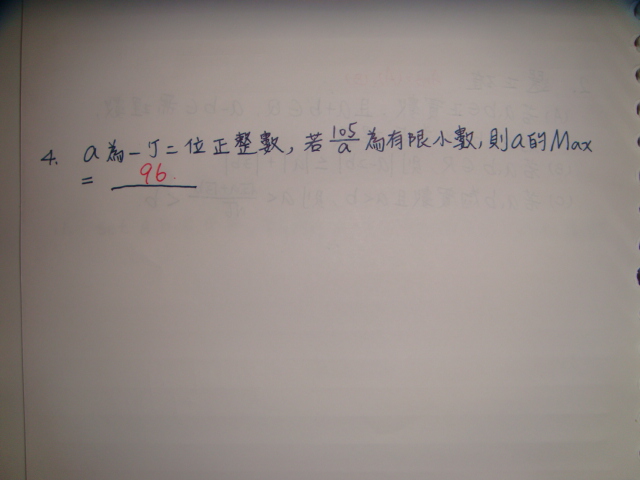 4. a為一了二位正整數,若105/a為有限小數,則a的Max
= 96.